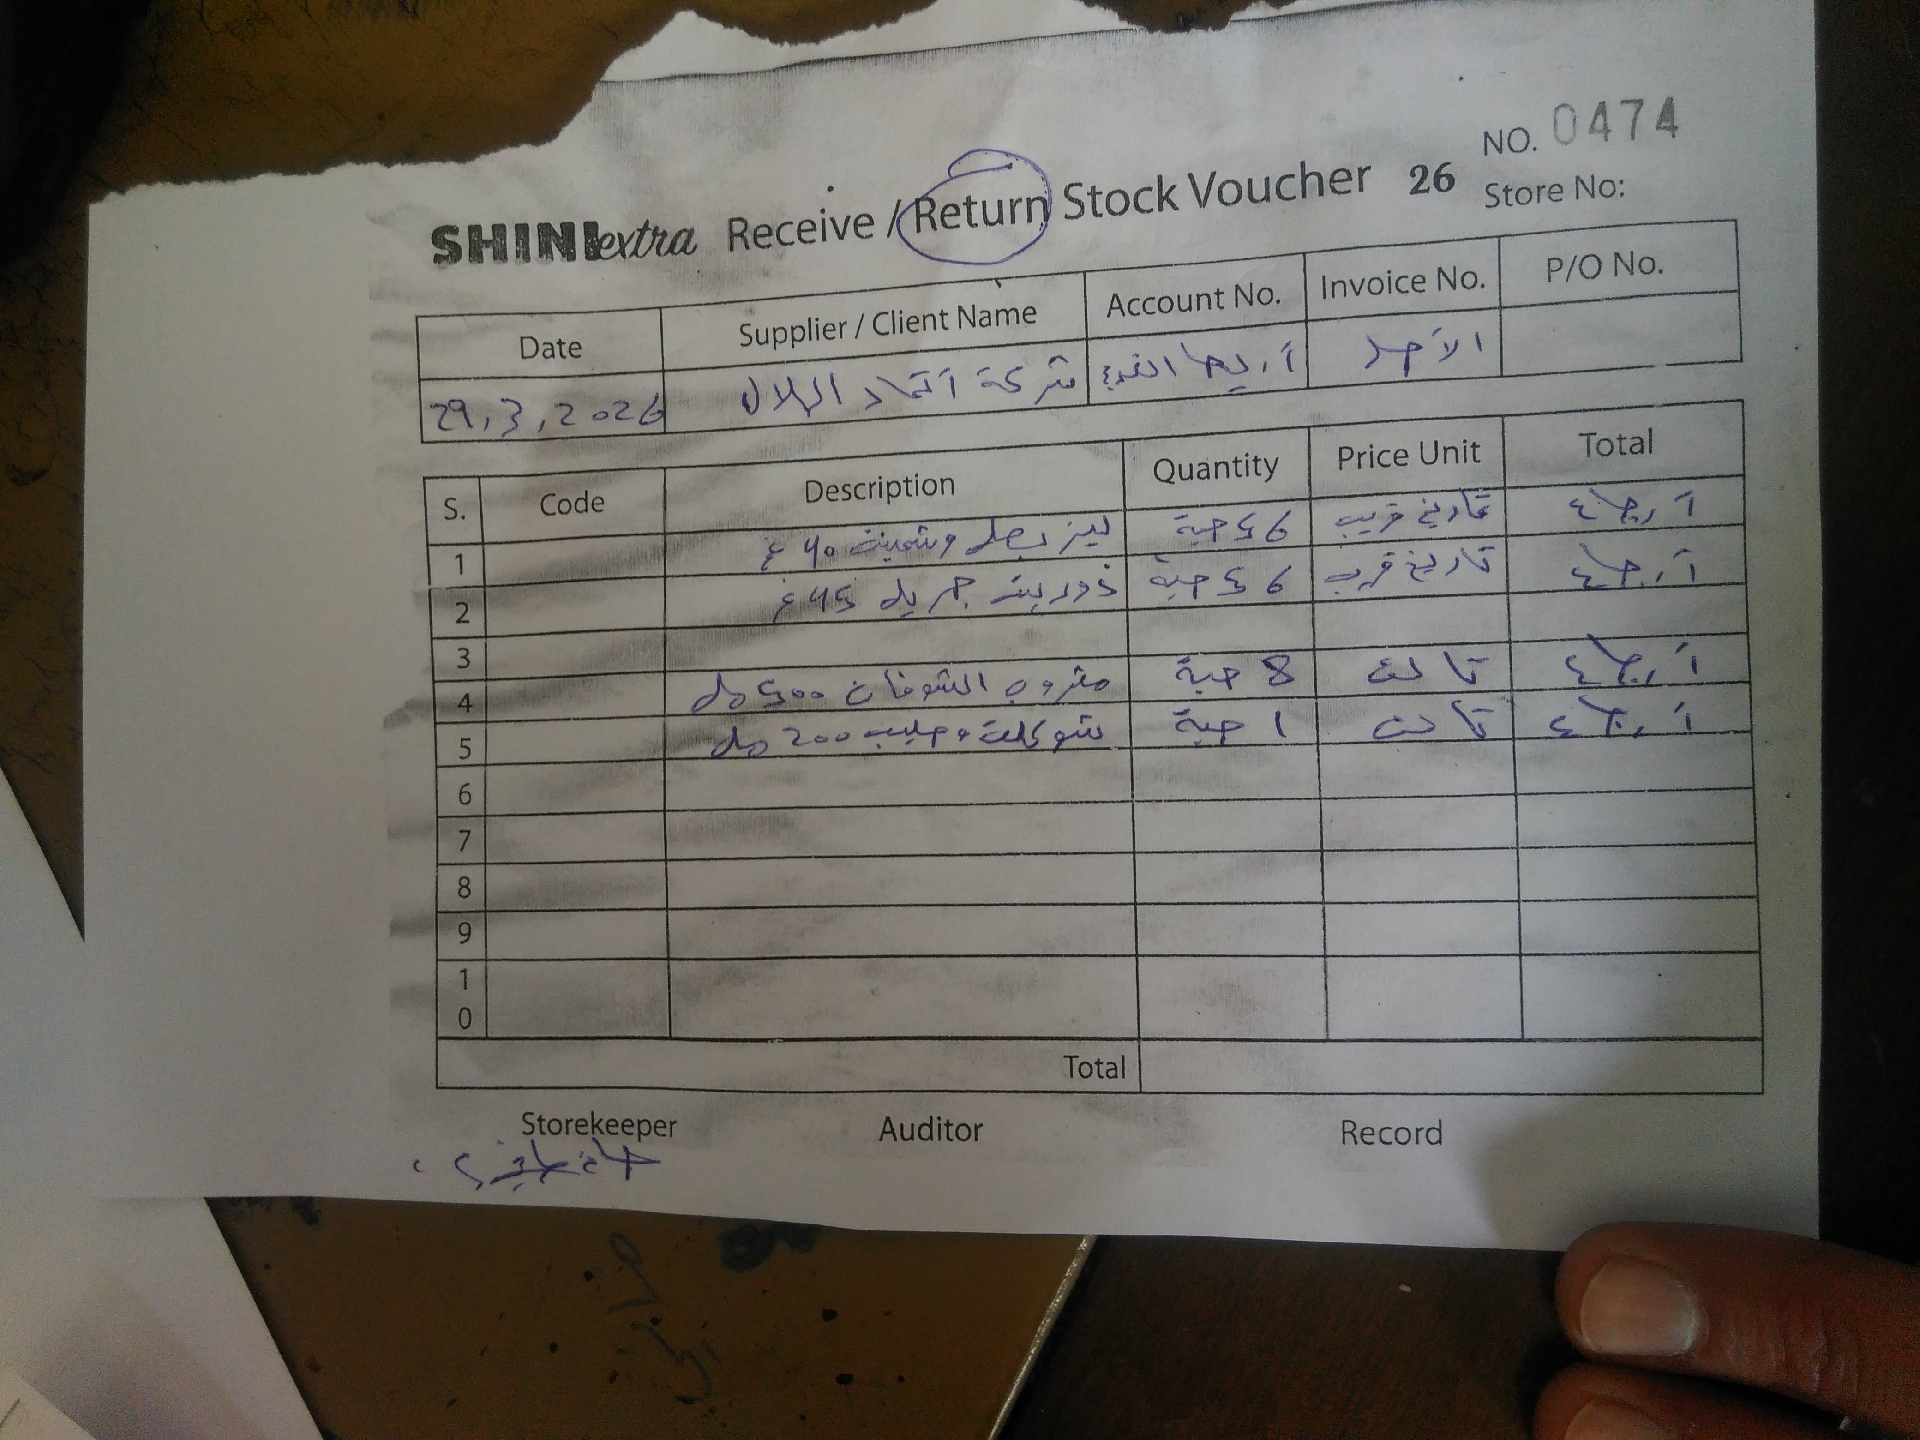 NO. 0474
SHINIextra Receive / Return Stock Voucher 26
Store No:
Date Supplier / Client Name Account No. Invoice No. P/O No.
29,3,2026 شركة اتحاد الهلال الأحد
S. Code Description Quantity Price Unit Total
1 ليز بصل و 40 غ حبة تاريخ قريب ارجاع
2 جريل 45 غ حبة تاريخ قريب ارجاع
3
4 مشروب الشوفان 500 مل 8 حبة تالف ارجاع
5 شوكلت وحليب 200 مل 1 حبة تالف ارجاع
6
7
8
9
10
Total
Storekeeper Auditor Record